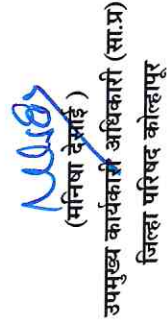 (मनिषा देसाई )
उपमुख्य कार्यकारी अधिकारी (सा.प्र)
जिल्हा परिषद कोल्हापूर